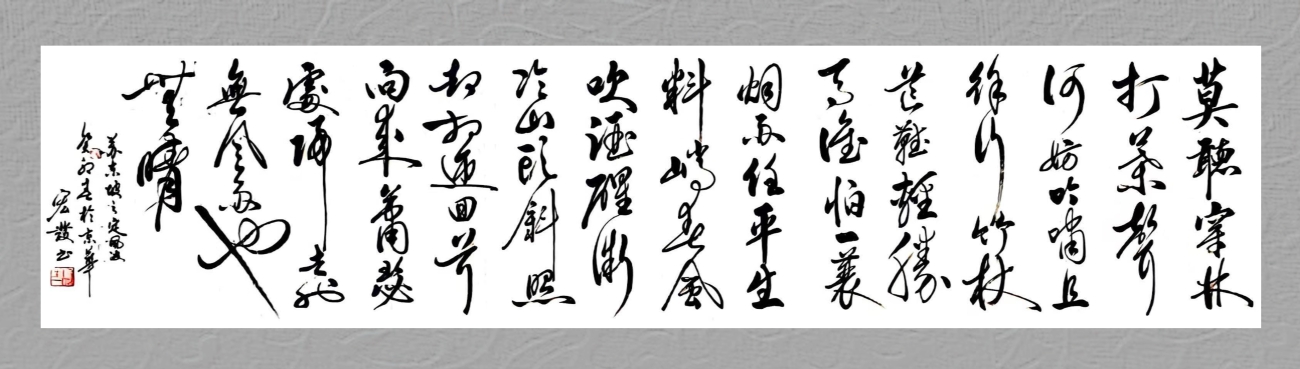 莫聽穿林
打葉聲
何妨吟嘯且
徐行竹杖
芒鞋輕勝
馬誰怕一蓑
烟雨任平生
料峭春風
吹酒醒微
冷山頭斜照
却相迎回首
向來蕭瑟
處歸去也
無風雨也
無晴
苏東坡之定風波
癸卯春於京華
宏發书